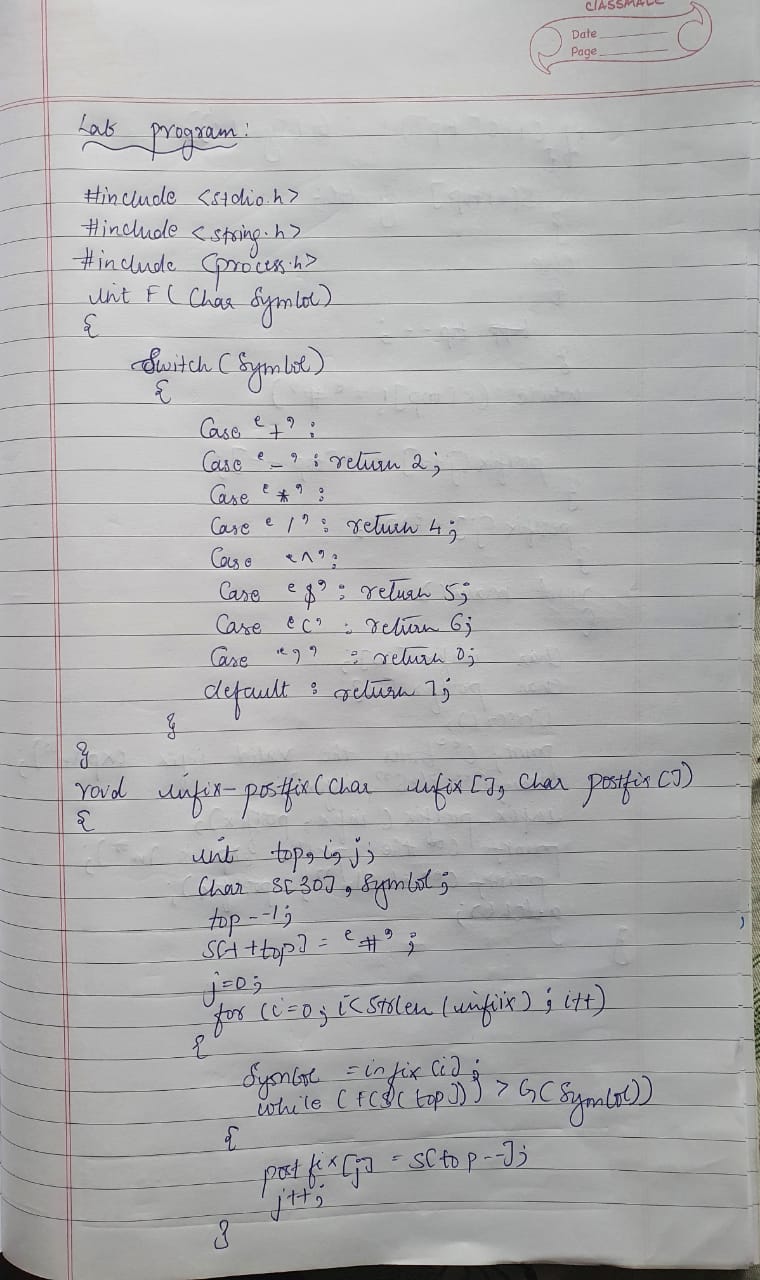 CLASSMATE
Date
Page
Lab program:
#include <stdio.h>
#include <string.h>
#include <process.h>
int F( Char Symbol)
{
Switch (Symbol)
{
Case '+' :
Case '-' : return 2;
Case '*' :
Case '/' : return 4;
Case '^' :
Case '$' : return 5;
Case '(' : return 6;
Case ')' : return 0;
default : return 7;
}
}
void infix-postfix (Char infix[], Char postfix[])
{
int top, i, j;
Char S[30], Symbol;
top--1;
S[++top] = '#';
j=0;
for (i=0; i<Strlen (infiix) ; i++)
{
Symbol = infix [i];
while (f(S[top])) > G(Symbol))
{
postfix[j] = S[top--];
j++;
}